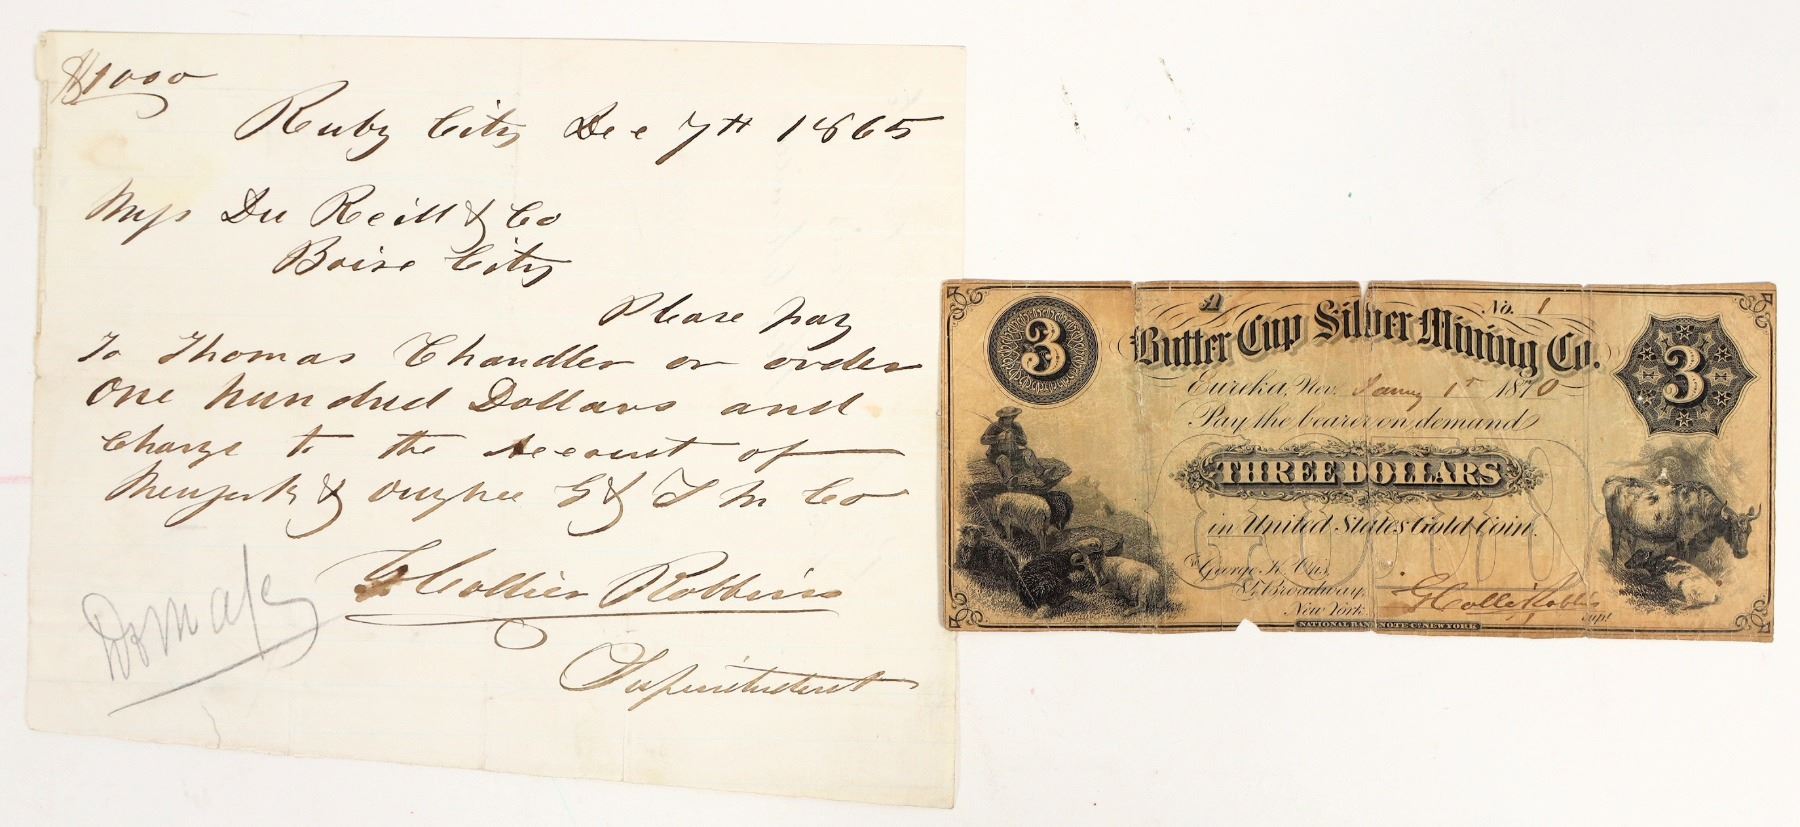 $1000
Ruby City Dec 7th 1865
Du Reill & Co
Boise City
Please pay
To Thomas Chandler or order
One hundred Dollars and
Charge to the Account of
New York & G & S M Co
G Collier Robbins
Superintendent
3
A
No. 1
Butter Cup Silver Mining Co.
Eureka, Nev. Jany 1st 1870
Pay the bearer on demand
THREE DOLLARS
in United States Gold Coin.
George K. Otis,
Broadway,
New York.
G Collier Robbins
Supt
NATIONAL BANK NOTE CO. NEW YORK
3